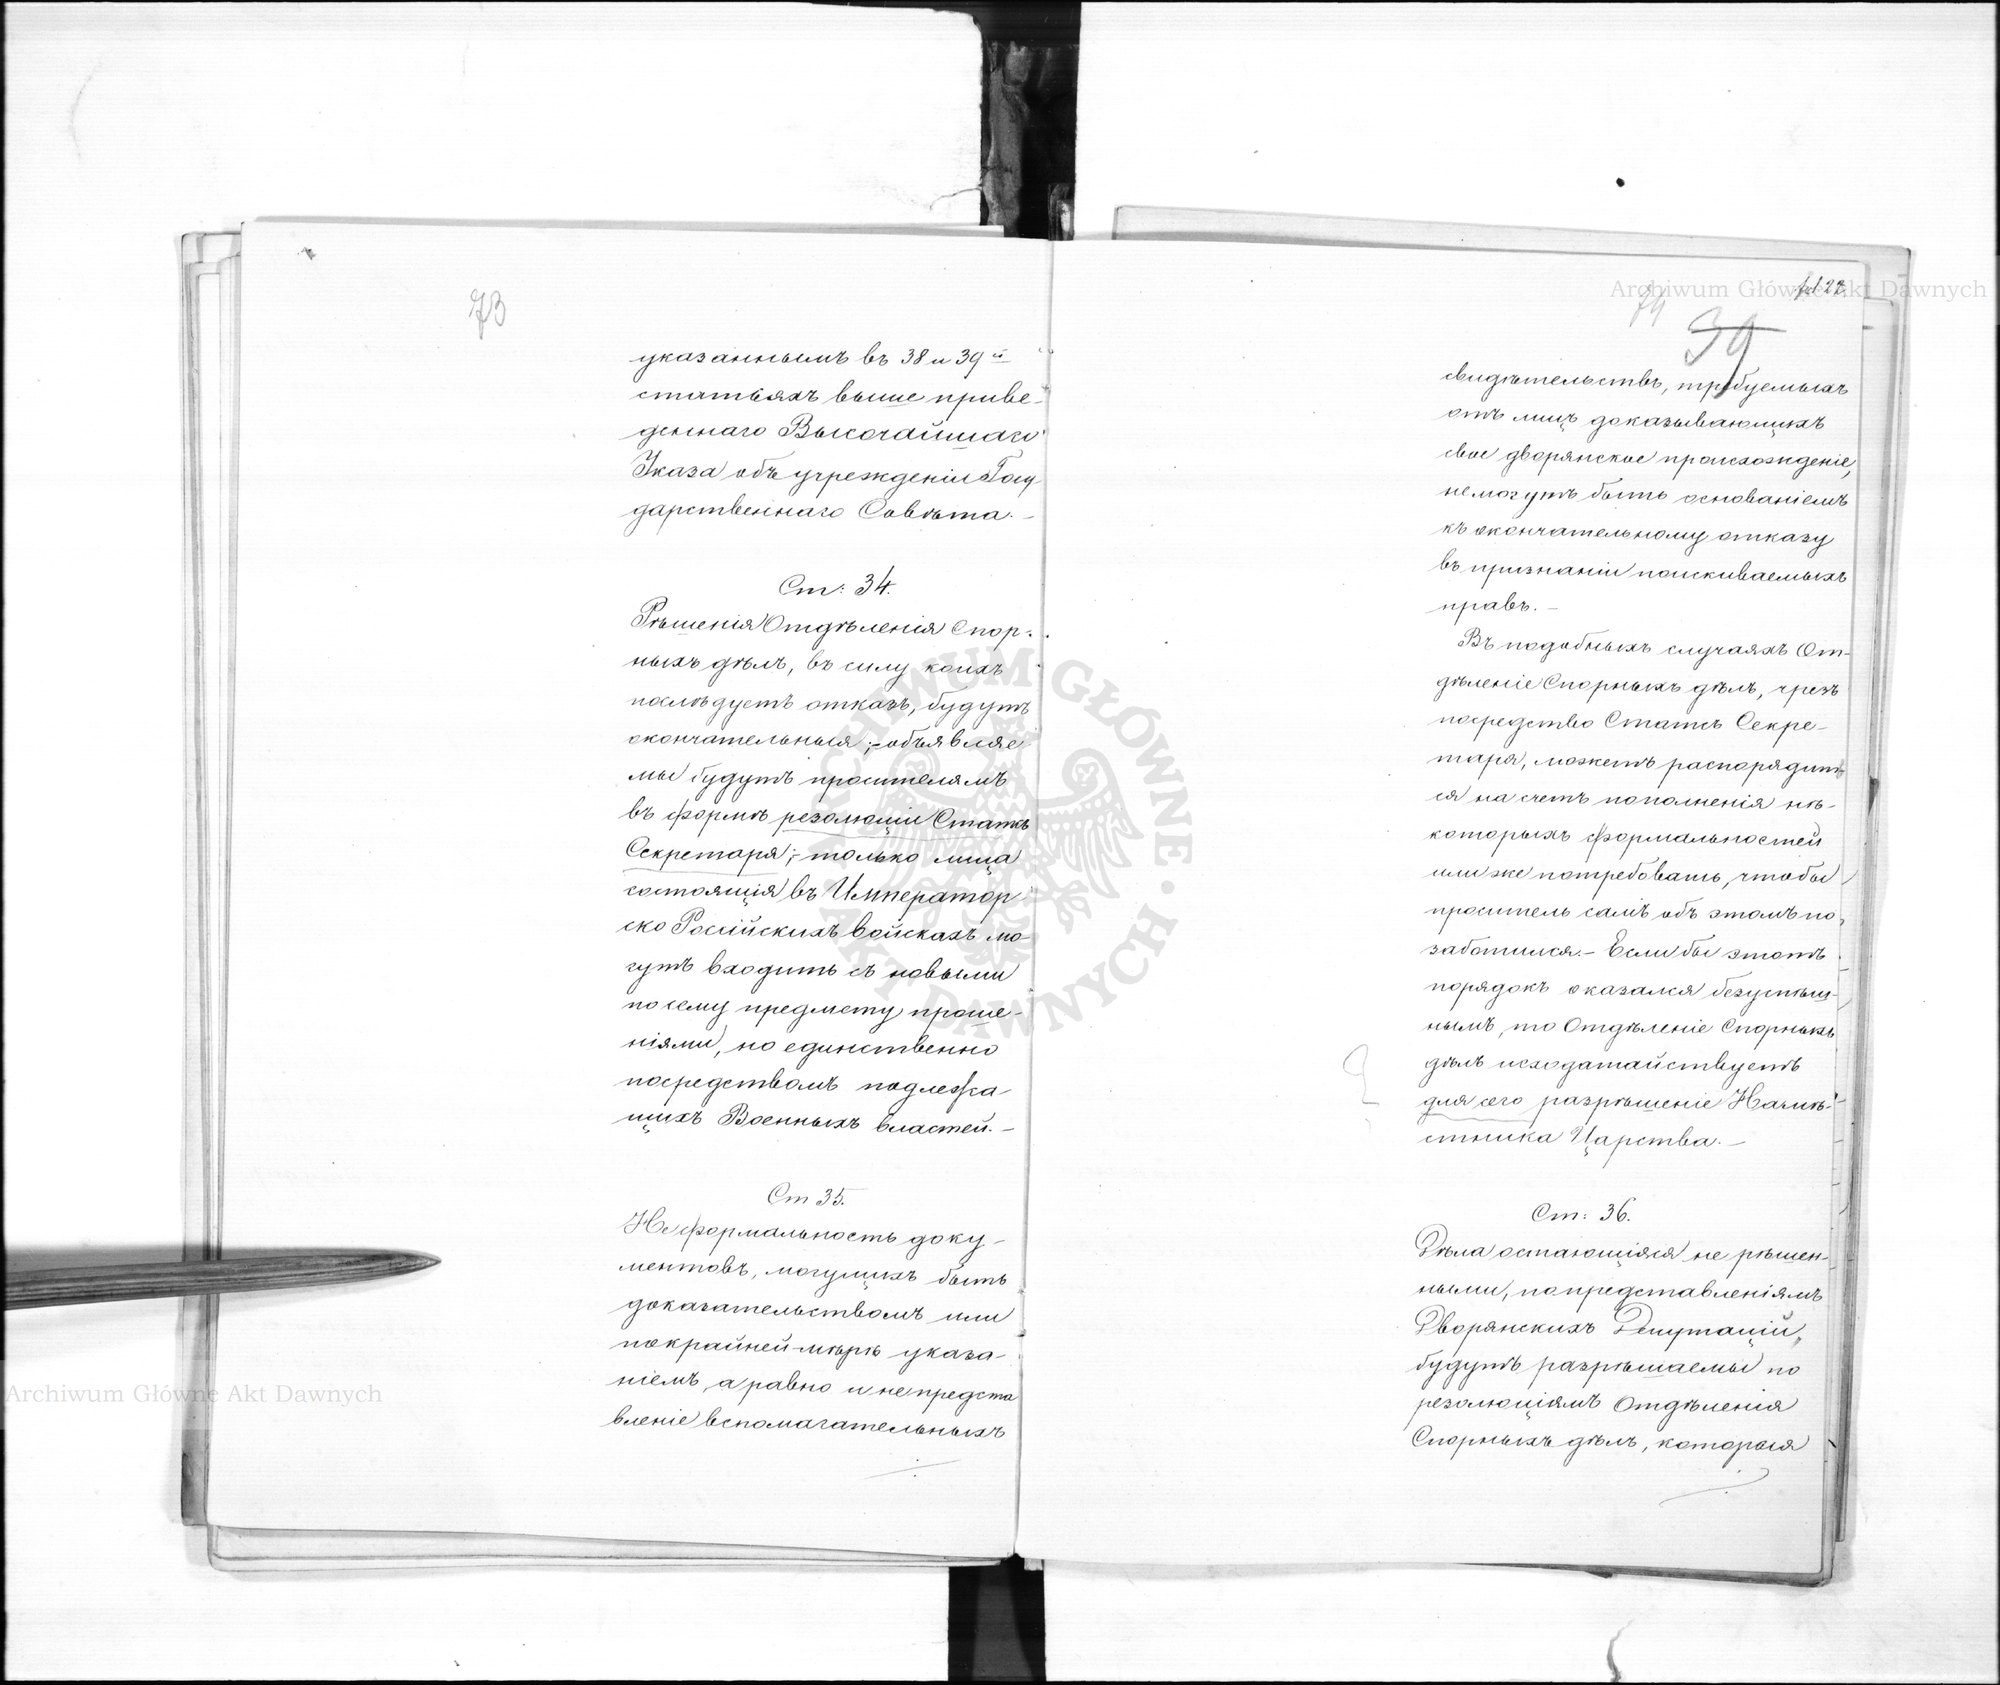 73
указаннымъ въ 38 и 39 й
статьяхъ выше приве-
деннаго Высочайшаго
Указа объ учрежденіи Госу
дарственнаго Совѣта. -
Ст: 34.
Рѣшенія Отдѣленія Спор-
ныхъ дѣлъ, въ силу коихъ
послѣдуетъ отказъ, будутъ
окончательныя; - объявляе
мы будутъ просителямъ
въ формѣ резолюціи Статсъ
Секретаря; - только лица
состоящія въ Император
ско Россійскихъ войскахъ мо-
гутъ входить съ новыми
по сему предмету проше-
ніями, но единственно
посредствомъ подлежа-
щихъ Военныхъ властей. -
Ст 35.
Неформальность доку-
ментовъ, могущихъ быть
доказательствомъ или
покрайней-мѣрѣ указа-
ніемъ, а равно и не предста
вленіе вспомагательныхъ
fol 27
74
39
свидѣтельствъ, требуемыхъ
отъ лицъ доказывающихъ
свое дворянское происхожденіе,
немогутъ быть основаніемъ
къ окончательному отказу
въ признаніи поискиваемыхъ
правъ. -
Въ подобныхъ случаяхъ От-
дѣленіе Спорныхъ дѣлъ, чрезъ
посредство Статсъ Секре-
таря, можетъ распорядить
ся на счетъ пополненія нѣ-
которыхъ формальностей
или же потребовать, чтобы
проситель самъ объ этомъ по-
заботился. - Если бы этотъ
порядокъ оказался безуспѣш-
нымъ, то Отдѣленіе Спорныхъ
дѣлъ исходатайствуетъ
для сего разрѣшеніе Намѣ-
стника Царства. -
Ст: 36.
Дѣла остающіяся не рѣшен-
ными, по представленіямъ
Дворянскихъ Депутацій,
будутъ разрѣшаемы по
резолюціямъ Отдѣленія
Спорныхъ дѣлъ, которыя
Archiwum Główne Akt Dawnych
Archiwum Główne Akt Dawnych
ARCHIWUM GŁÓWNE AKT DAWNYCH